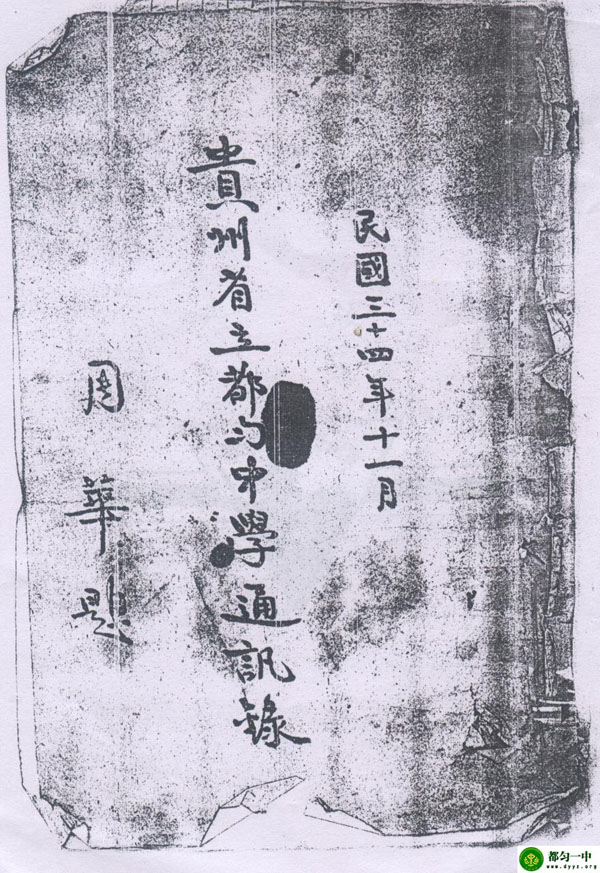 民國三十四年十一月
貴州省立都匀中學通訊錄
周華題
都匀一中
www.dyyz.org